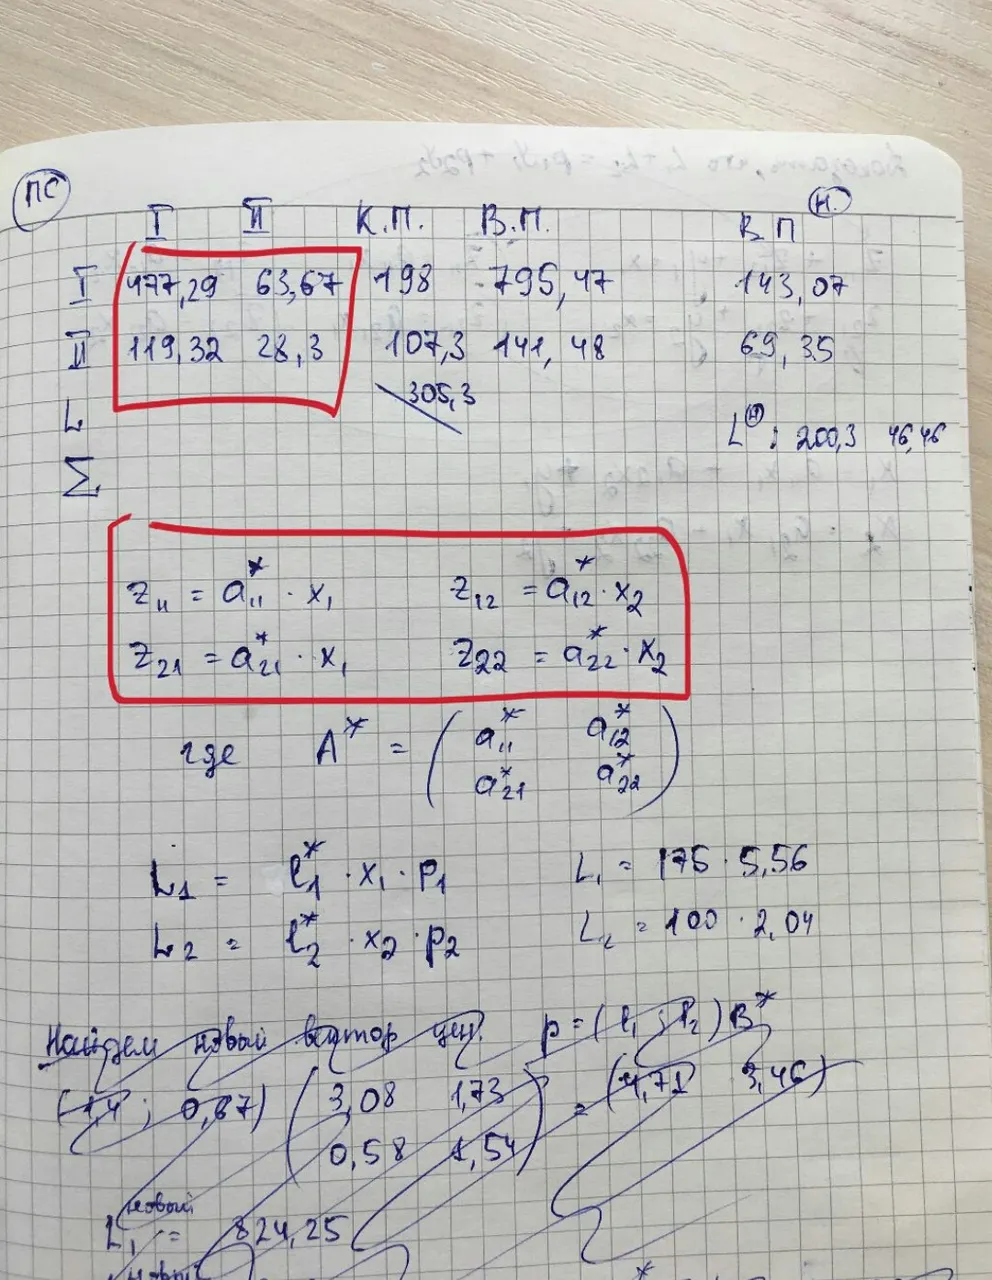 ПС
I II К.П. В.П. Н. В П
I 477,29 63,67 198 795,47 143,07
II 119,32 28,3 107,3 141,48 69,35
305,3
L L^(Н) : 200,3 46,46
Σ
z₁₁ = a*₁₁ · x₁ z₁₂ = a*₁₂ · x₂
z₂₁ = a*₂₁ · x₁ z₂₂ = a*₂₂ · x₂
где A* = ( a*₁₁ a*₁₂
a*₂₁ a*₂₂ )
L₁ = l*₁ · x₁ · p₁ L₁ = 175 · 5,56
L₂ = l*₂ · x₂ · p₂ L₂ = 100 · 2,04
Найдем новый вектор цен. p = (l₁ ; l₂) B*
(1,4 ; 0,67) ( 3,08 1,73 ) = (4,71 3,46)
0,58 1,54
новый
L₁ = 824,25
новый